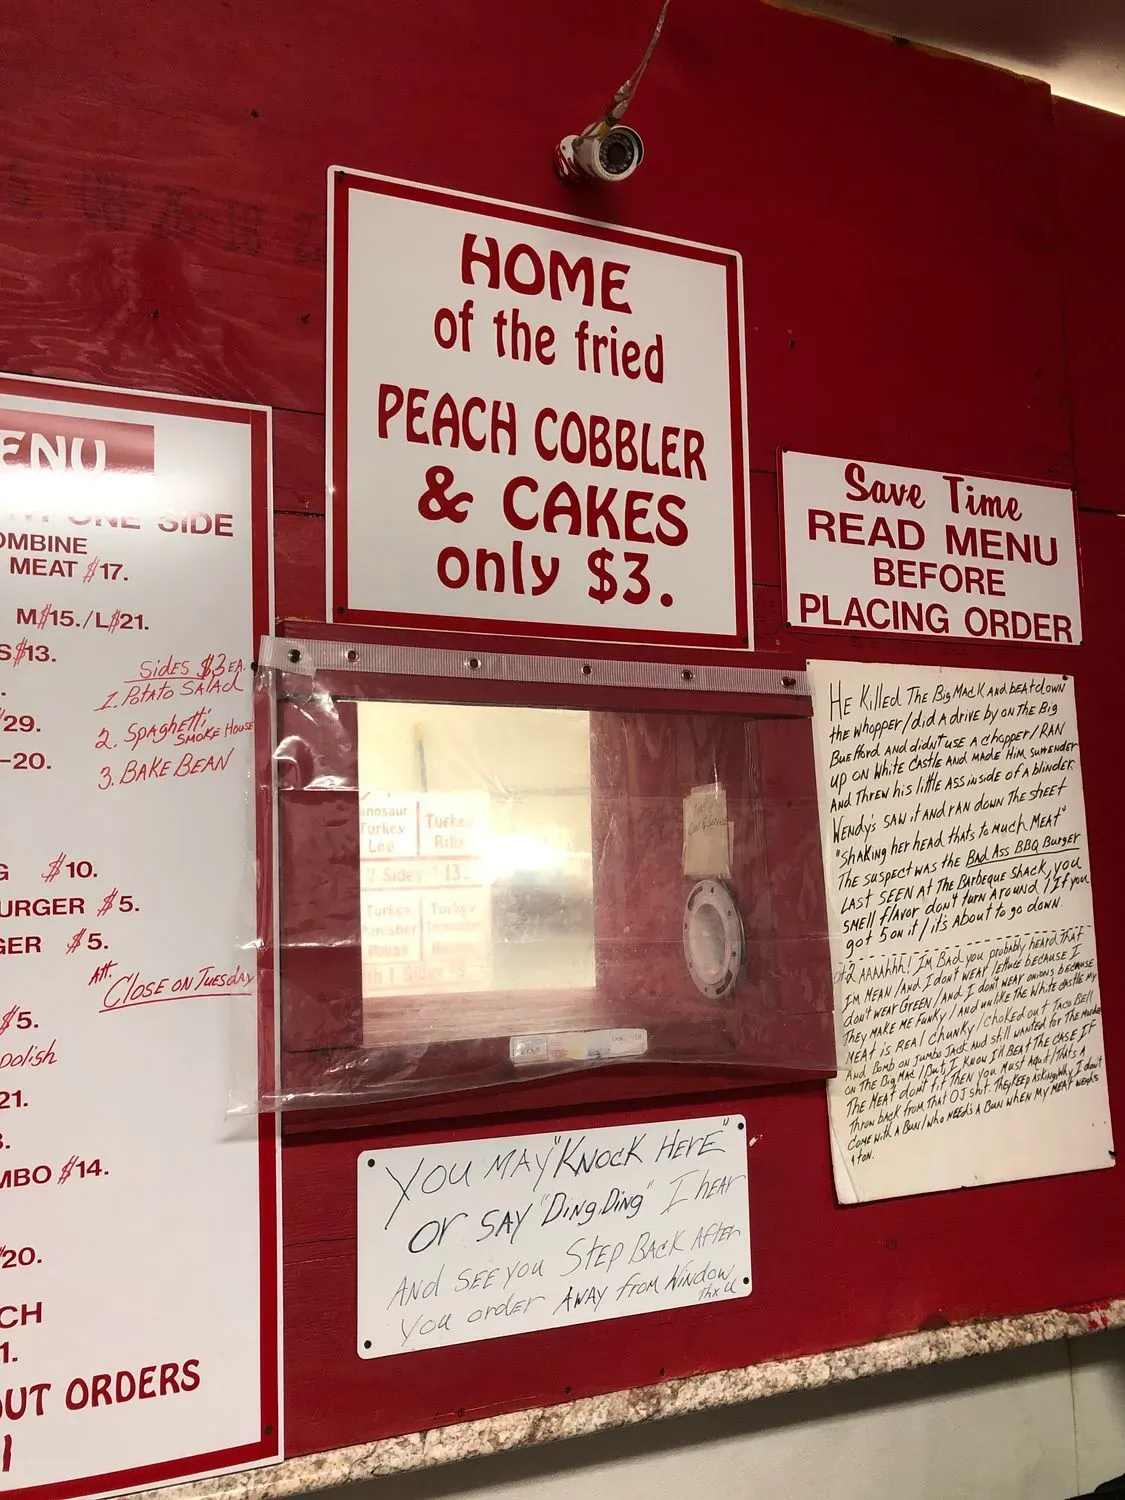 HOME
of the fried
PEACH COBBLER
& CAKES
only $3.
Save Time
READ MENU
BEFORE
PLACING ORDER
ENU
ONE SIDE
OMBINE
MEAT $17.
M$15./L$21.
S$13.
Sides $3 EA.
1. Potato Salad
29.
2. Spaghetti,
Smoke House
-20.
3. BAKE BEAN
G $10.
URGER $5.
GER $5.
Att.
Close on Tuesday
$5.
Polish
21.
MBO $14.
20.
CH
1.
OUT ORDERS
inosaur
Turkey
Leg
Turkey
Ribs
2 Sides 13.
Turkey
Turkey
VISA
He Killed The Big Mack and beat down
the whopper/did a drive by on The Big
Buefford and didn't use a chopper/RAN
up on White Castle and made Him surrender
And Threw his little Ass inside of a blinder.
Wendy's saw it and ran down The street
"Shaking her head thats to much MEAT"
The suspect was the Bad Ass BBQ Burger
Last seen at The Barbeque Shack, you
smell flavor don't turn Around / If you
got 5 on it / it's About to go down.
AAAAhhh! I'm Bad you probably heard That
I'm MEAN/And I don't wear lettuce because I
don't wear Green/And I don't wear onions because
They make me Funky/And unlike The White castle my
MEAT is REAL Chunky/Choked out Taco Bell
And Bomb on Jumbo Jack And still wanted for The Murder
on The Big Mac/But I know I'll Beat The case If
The MEAT don't fit Then you Must Aquit/That's A
Throw back from That OJ shit. They keep Asking Why I don't
come with A Bun/who needs A Bun when My MEAT weighs
A ton.
You MAY "Knock HERE"
or say "Ding, Ding" I hear
And see you Step Back After
You order Away from Window
Thx U